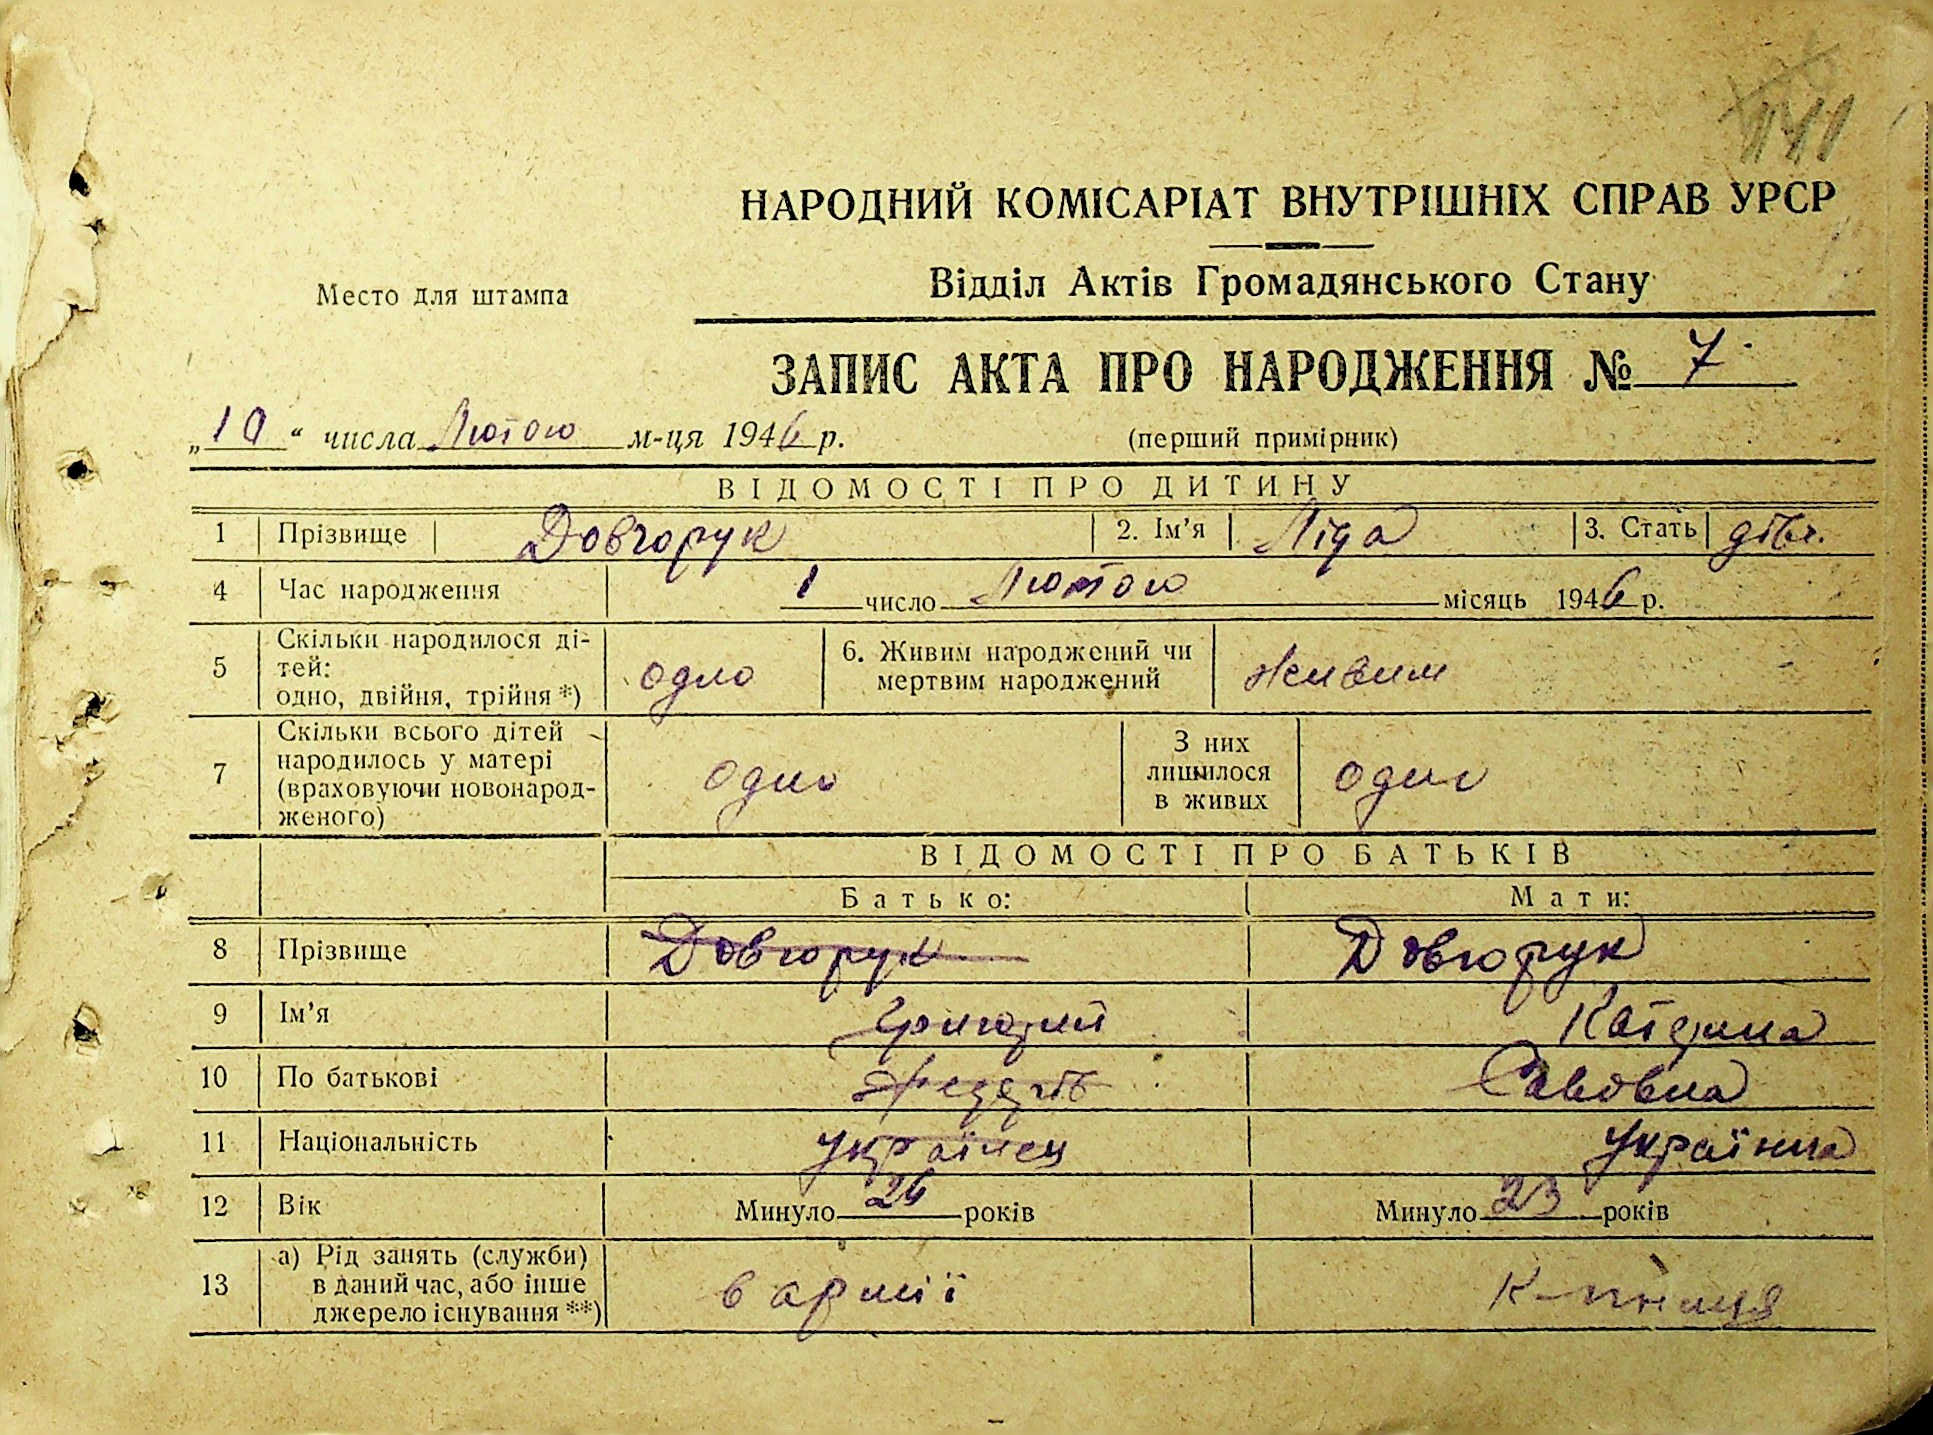 НАРОДНИЙ КОМІСАРІАТ ВНУТРІШНІХ СПРАВ УРСР
Место для штампа
Відділ Актів Громадянського Стану
ЗАПИС АКТА ПРО НАРОДЖЕННЯ № 7
„10“ числа Лютого м-ця 1946 р. (перший примірник)
ВІДОМОСТІ ПРО ДИТИНУ
1 Прізвище Довгорук 2. Ім'я Ліда 3. Стать дівч.
4 Час народження 1 число Лютого місяць 1946 р.
5 Скільки народилося ді-
тей:
одно, двійня, трійня *) одно 6. Живим народжений чи
мертвим народжений живим
7 Скільки всього дітей
народилось у матері
(враховуючи новонарод-
женого) одно З них
лишилося
в живих одно
ВІДОМОСТІ ПРО БАТЬКІВ
Батько: Мати:
8 Прізвище Довгорук Довгорук
9 Ім'я Григорий Катерина
10 По батькові Савовна
11 Національність Українец Українка
12 Вік Минуло 24 років Минуло 23 років
13 а) Рід занять (служби)
в даний час, або інше
джерело існування **) в армії